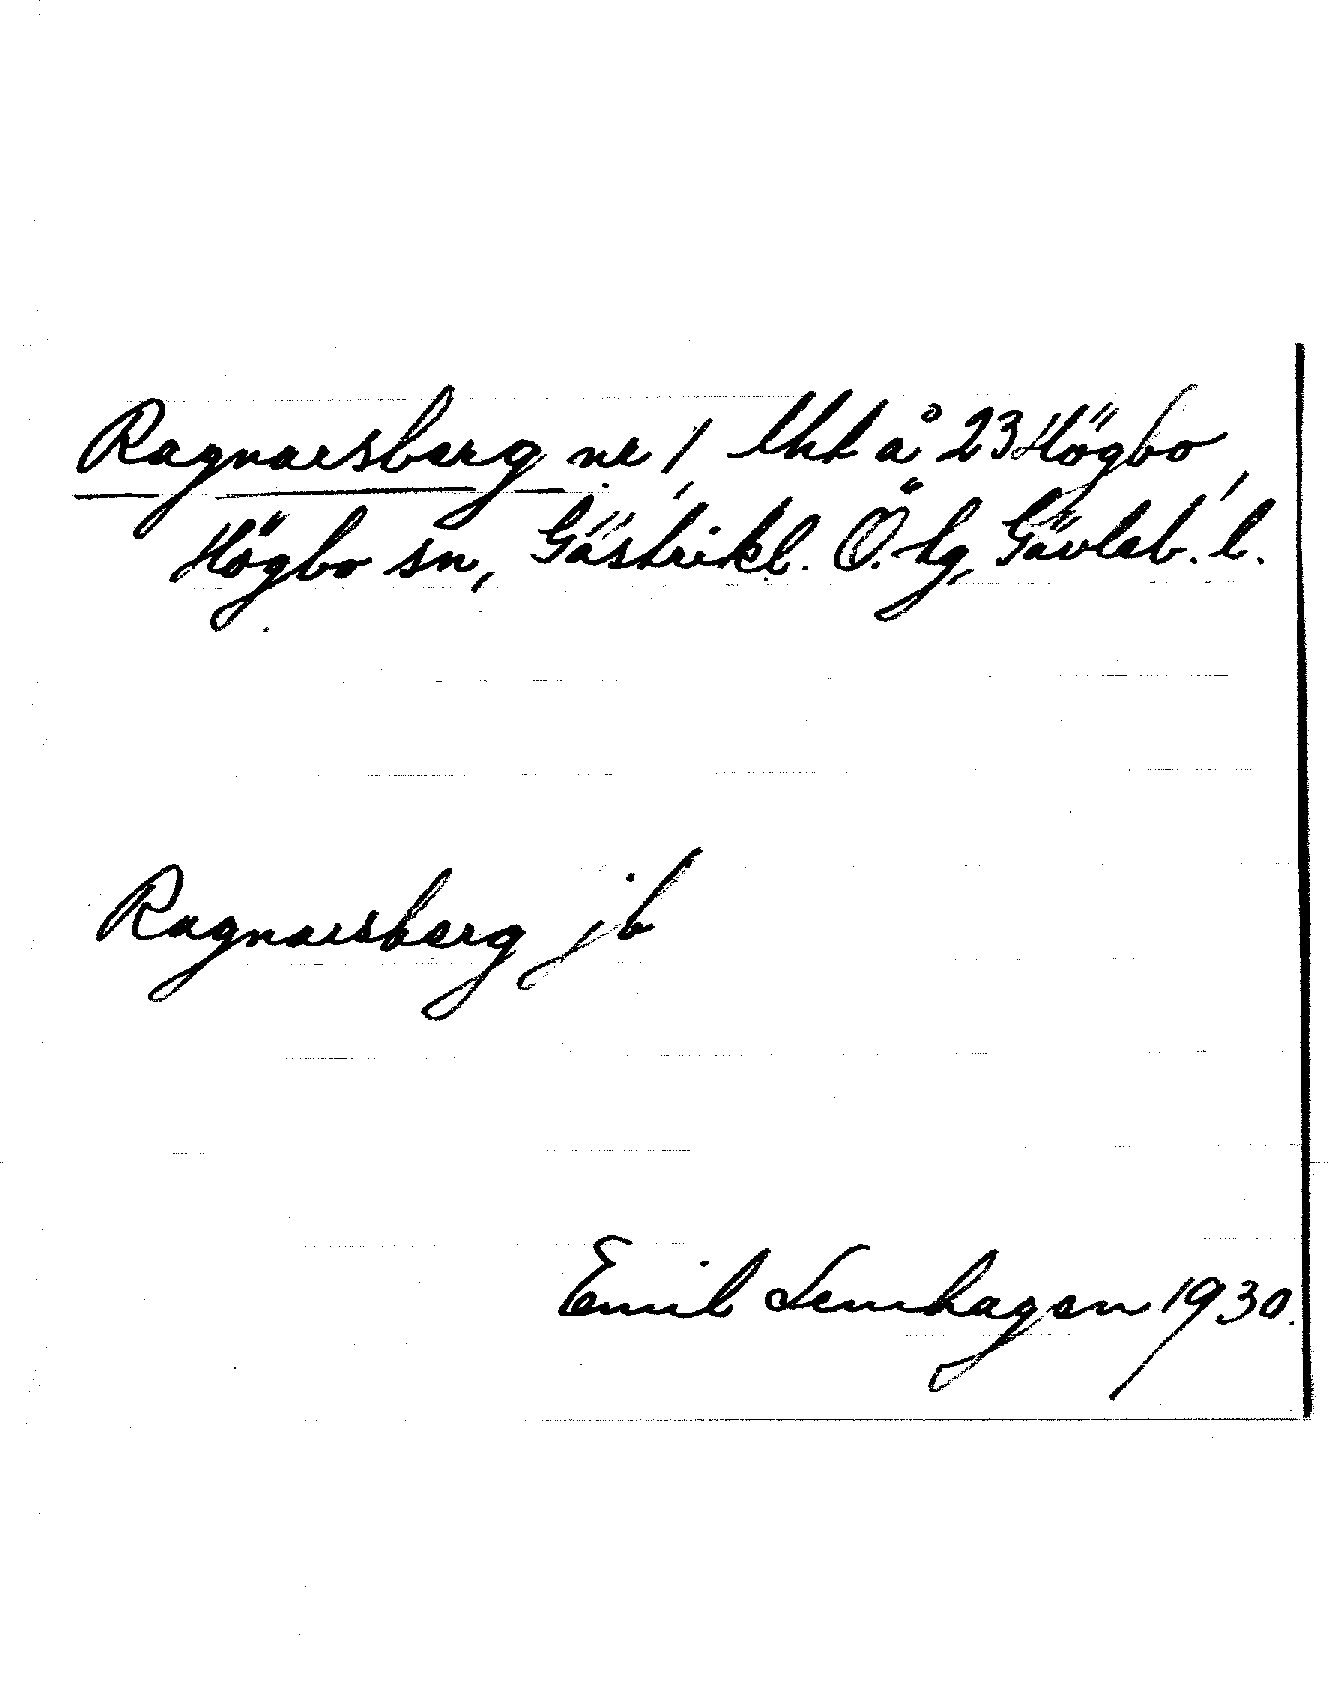 Ragnarsberg nr 1, lht å 23 Högbo,
Högbo sn, Gästrikl. Ö. tg, Gävleb. l.
Ragnarsberg jb
Emil 1930.